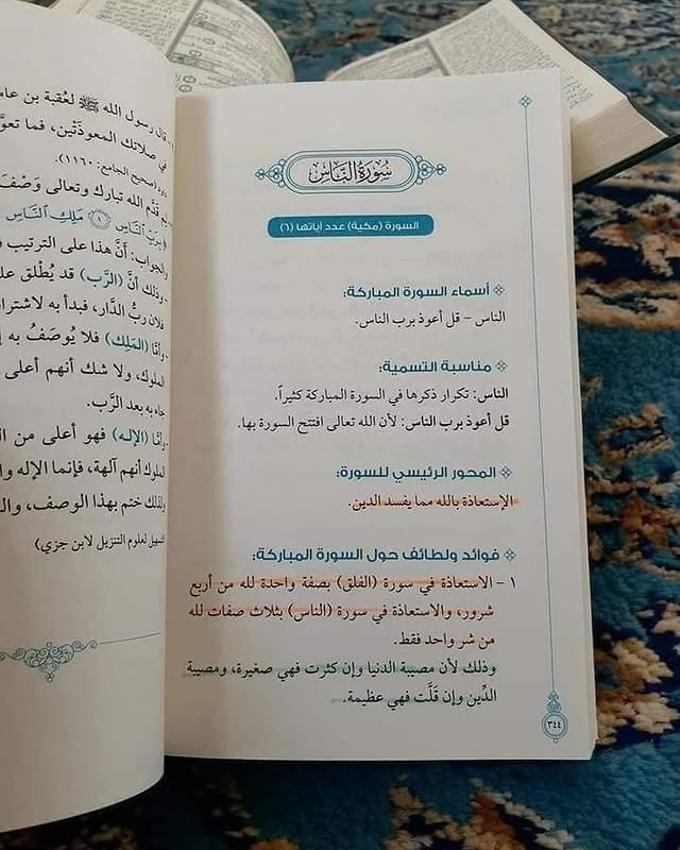 سُورَةُ النَّاسِ
السورة (مكية) عدد آياتها (٦)
أسماء السورة المباركة:
الناس - قل أعوذ برب الناس.
مناسبة التسمية:
الناس: تكرار ذكرها في السورة المباركة كثيراً.
قل أعوذ برب الناس: لأن الله تعالى افتتح السورة بها.
المحور الرئيسي للسورة:
الإستعاذة بالله مما يفسد الدين.
فوائد ولطائف حول السورة المباركة:
١ - الاستعاذة في سورة (الفلق) بصفة واحدة لله من أربع
شرور، والاستعاذة في سورة (الناس) بثلاث صفات لله
من شر واحد فقط.
وذلك لأن مصيبة الدنيا وإن كثرت فهي صغيرة، ومصيبة
الدِّين وإن قَلَّت فهي عظيمة.
٣٤٤
قال رسول الله ﷺ لعُقبة بن عام
في صلاتك المعوذَتَين، فما تعوَّ
(صحيح الجامع: ١١٦٠).
قدَّم الله تبارك وتعالى وَصْفَ
بِرَبِّ ٱلنَّاسِ ١ مَلِكِ ٱلنَّاسِ
والجواب: أنَّ هذا على الترتيب ف
- وذلك أنَّ (الرَّب) قد يُطْلق على
فلان ربُّ الدَّار، فبدأ به لاشترا
- وأمَّا (المَلِك) فلا يُوصَفُ به إ
الملوك، ولا شك أنهم أعلى
جاء به بعد الرَّب.
- وأمَّا (الإله) فهو أعلى من ال
الملوك أنهم آلهة، فإنما الإله وا
ولذلك ختم بهذا الوصف، وال
(التسهيل لعلوم التنزيل لابن جزي)